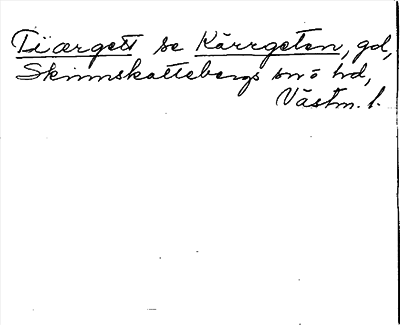 Tiærgett se Kärrgeten, gd,
Skinnskattebergs sn o hd,
Västm. l.